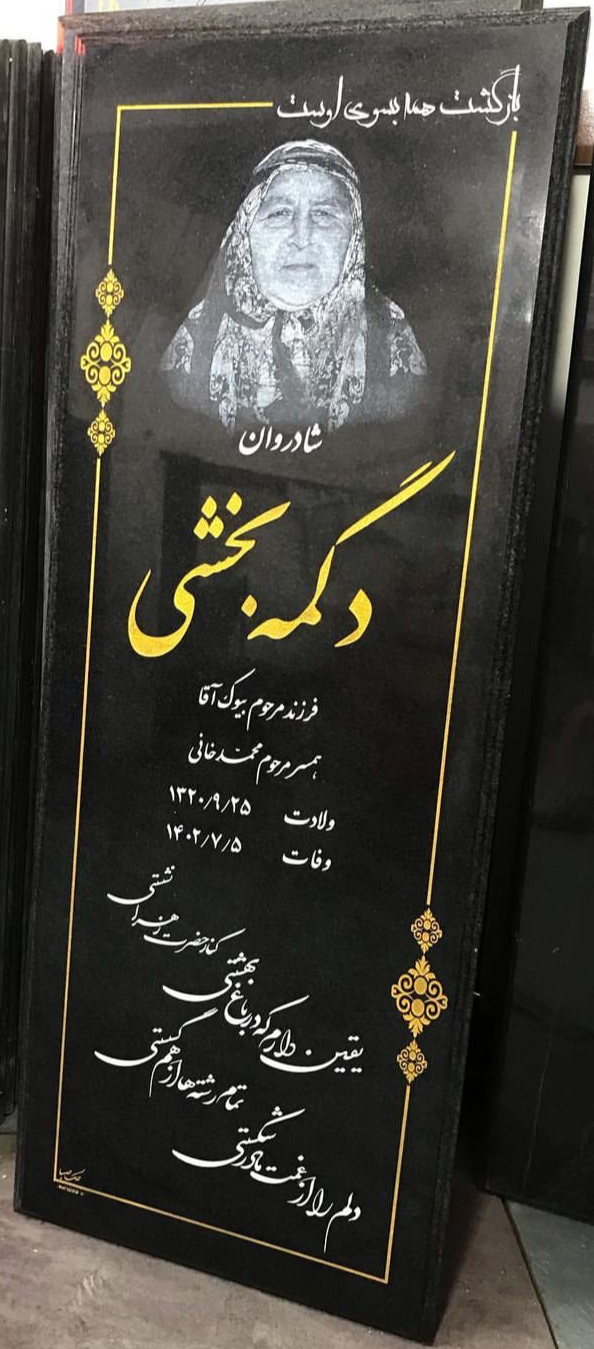 بازگشت همه بسوی اوست
شادروان
دگمه بخشی
فرزند مرحوم بیوک آقا
همسر مرحوم محمد خانی
ولادت ۱۳۲۰/۹/۲۵
وفات ۱۴۰۲/۷/۵
یقین دارم که در باغ بهشتی
کنار حضرت زهرا نشستی
دلم را از غمت مادر شکستی
تمام رشته ها از هم گسستی